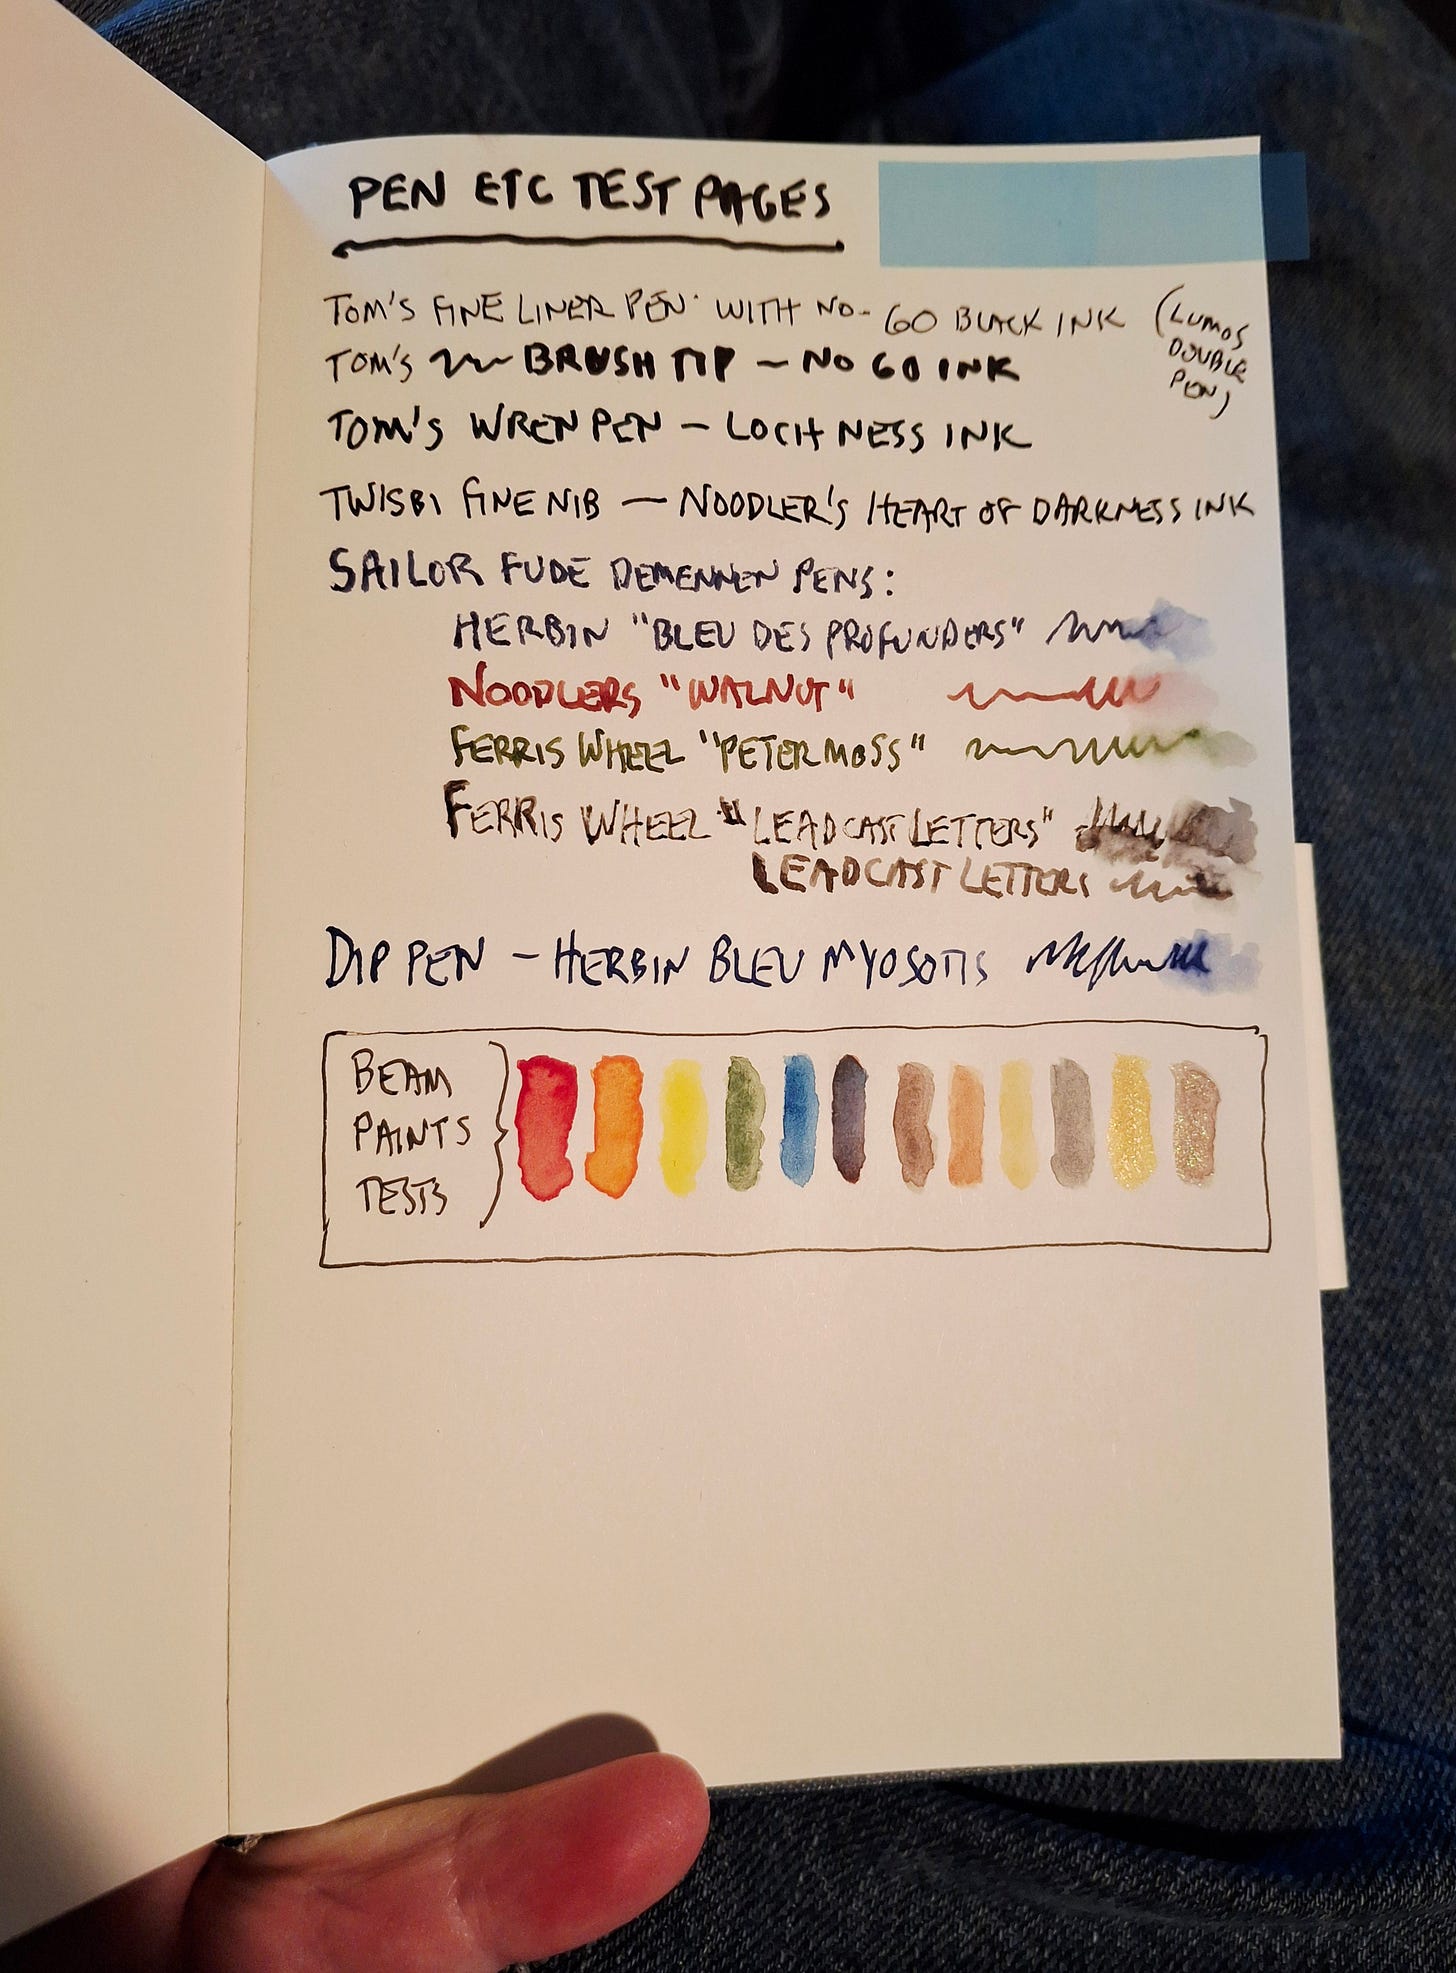 PEN ETC TEST PAGES
TOM'S FINE LINER PEN WITH NO-GO BLACK INK (LUMOS
DOUBLE
PEN)
TOM'S BRUSH TIP – NO GO INK
TOM'S WREN PEN – LOCH NESS INK
TWISBI FINE NIB — NOODLER'S HEART OF DARKNESS INK
SAILOR FUDE DEMENNEN PENS:
HERBIN "BLEU DES PROFUNDERS"
NOODLERS "WALNUT"
FERRIS WHEEL "PETER MOSS"
FERRIS WHEEL "LEADCAST LETTERS"
LEADCAST LETTERS
DIP PEN – HERBIN BLEU MYOSOTIS
BEAM
PAINTS
TESTS